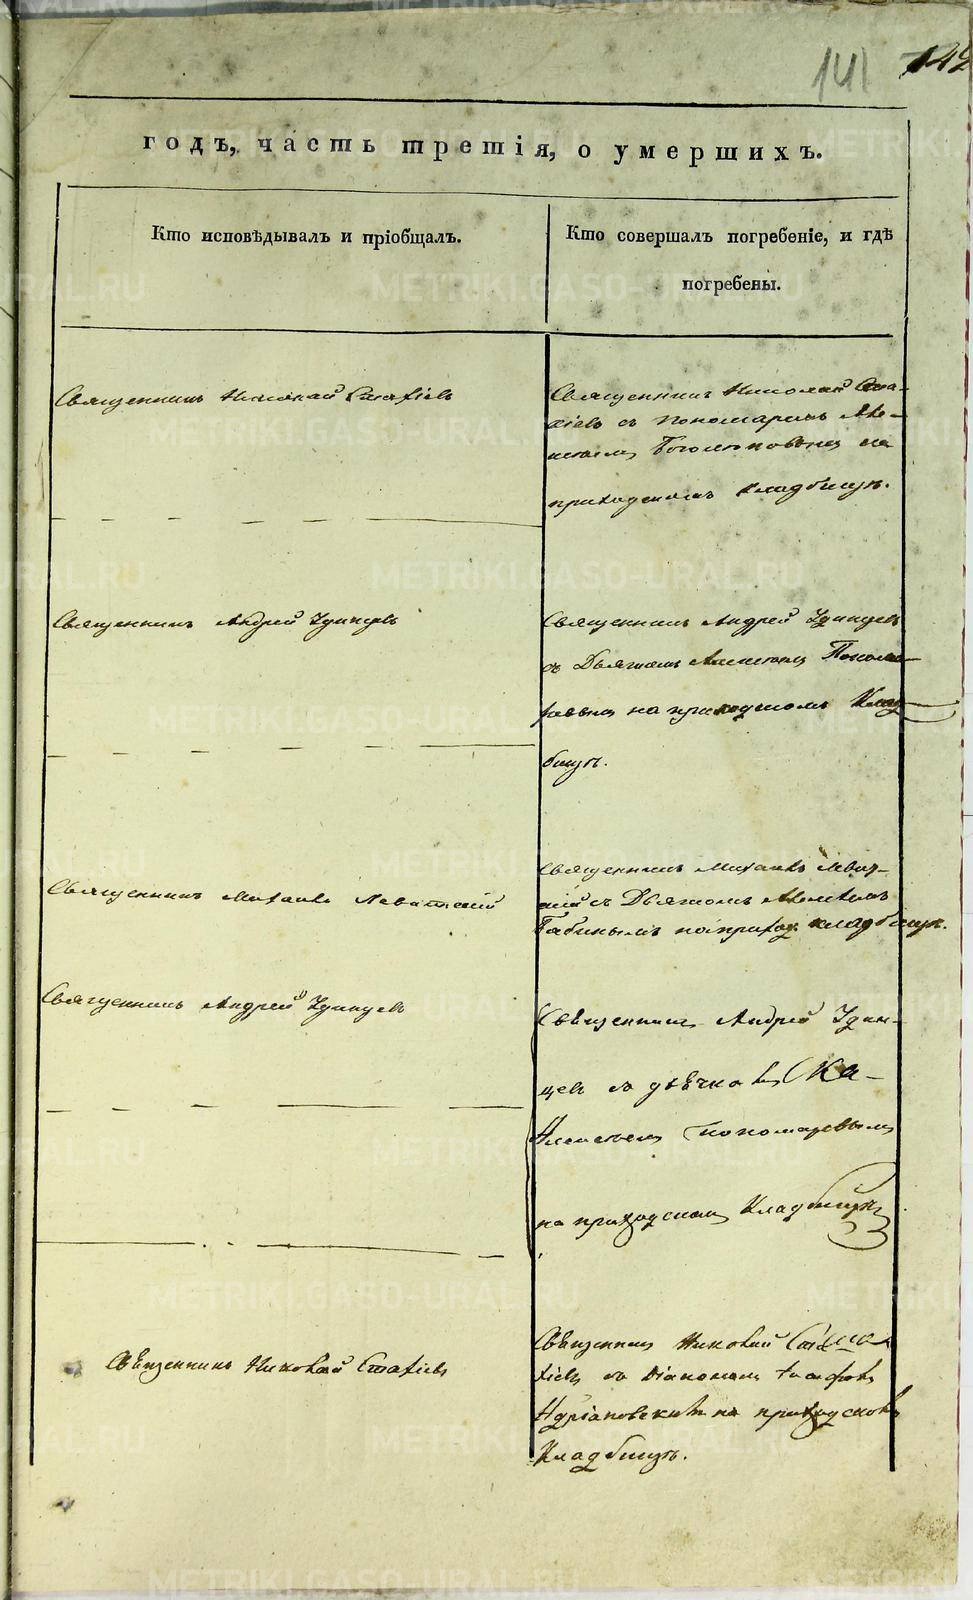 141 142
годъ, часть третія, о умершихъ.
Кто исповѣдывалъ и пріобщалъ.
Кто совершалъ погребеніе, и гдѣ
погребены.
Священникъ Николай Стахіевъ
Священникъ Николай Ста-
хіевъ съ пономаремъ Але-
на
приходскомъ кладбищѣ.
Священникъ Андрей Удинцевъ
Священникъ Андрей Удинцевъ
съ Дьячкомъ Алексѣемъ Понома-
ревымъ на приходскомъ Клад
бищѣ.
Священникъ Михаилъ Левитскій
Священникъ Михаилъ Левит-
скій съ Дьячкомъ
Бабинымъ на приход. кладбищѣ.
Священникъ Андрей Удинцевъ
Священникъ Андрей Удин-
цевъ съ дьячкомъ
Алексѣемъ пономаревымъ
на приходскомъ Кладбищѣ
Священникъ Николай Стахіевъ
Священникъ Николай Ста
хіевъ съ Діакономъ
Адріановскимъ на приходскомъ
Кладбищѣ.
METRIKI.GASO-URAL.RU